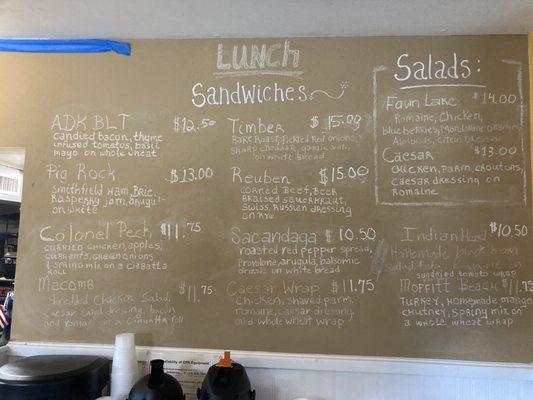 LUNCH
Sandwiches
ADK BLT $12.50
candied bacon, thyme
infused tomatos, basil
mayo on whole wheat
Pig Rock $13.00
Smithfield Ham, Brie,
Raspberry Jam,
on white
Colonel Peck $11.75
curried chicken, apples,
currants, green onions
& spring mix on a ciabatta
roll
Macomb $11.75
Shredded Chicken Salad,
Caesar dressing, bacon
and romaine on a ciabatta roll
Timber $15.00
Rare Roast, pickled red onions,
Sharp cheddar, garlic aioli,
on white bread
Reuben $15.00
Corned Beef, Beer
Braised Sauerkraut,
Swiss, Russian dressing
on Rye
Sacandaga $10.50
roasted red pepper spread,
Provolone, arugula, balsamic
on white bread
Caesar Wrap $11.75
Chicken, shaved parm,
romaine, caesar dressing,
and whole wheat wrap
Salads:
Faun Lake $14.00
Romaine, Chicken,
blueberries, Mandarine oranges,
Almonds, citrus dressing
Caesar $13.00
Chicken, Parm, Croutons,
Caesar dressing on
Romaine
Indian Head $10.50
Homemade black bean
sundried tomato wrap
Moffitt Beach $11.75
Turkey, homemade mango
chutney, spring mix on
a whole wheat wrap